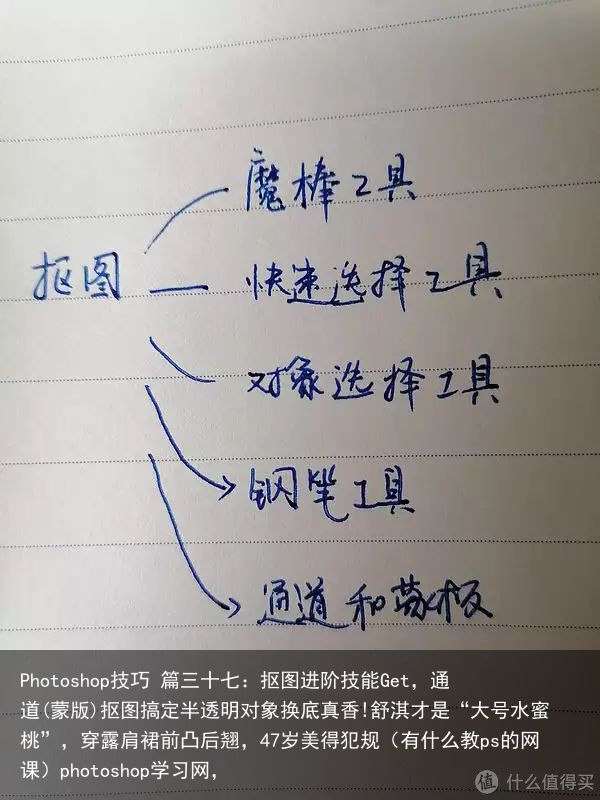 魔棒工具
抠图
快速选择工具
对象选择工具
钢笔工具
通道和蒙板
Photoshop技巧 篇三十七：抠图进阶技能Get，通
道(蒙版)抠图搞定半透明对象换底真香!舒淇才是“大号水蜜
桃”，穿露肩裙前凸后翘，47岁美得犯规（有什么教ps的网
课）photoshop学习网，
值 什么值得买